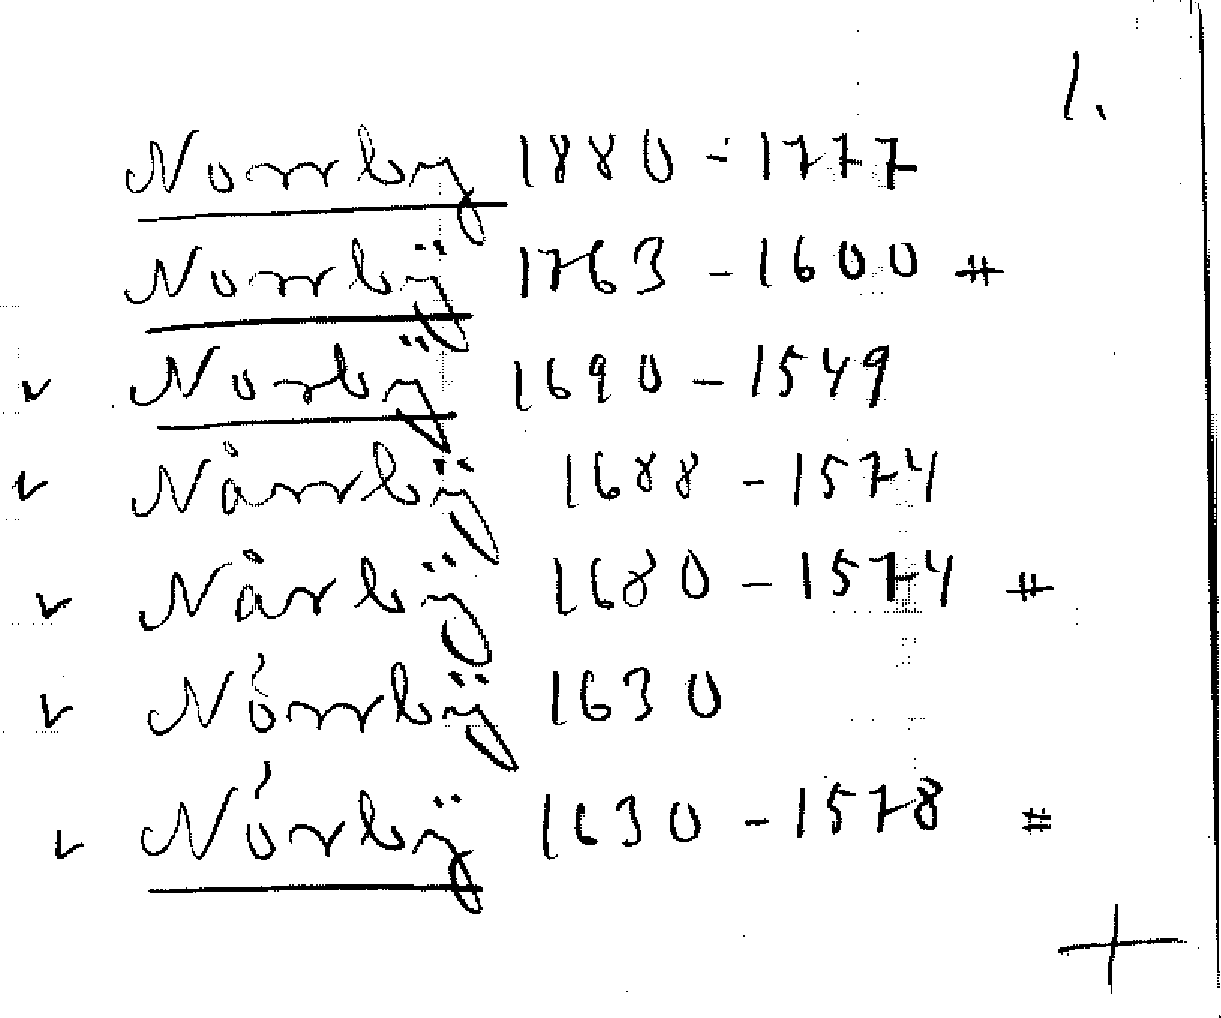 1.
Norrby 1880 - 1777
Norrbÿ 1763 - 1600 #
v Norbÿ 1690 - 1549
v Nårrbÿ 1688 - 1574
v Nårbÿ 1680 - 1574 #
v Nórrbÿ 1630
v Nórbÿ 1630 - 1578 #
+